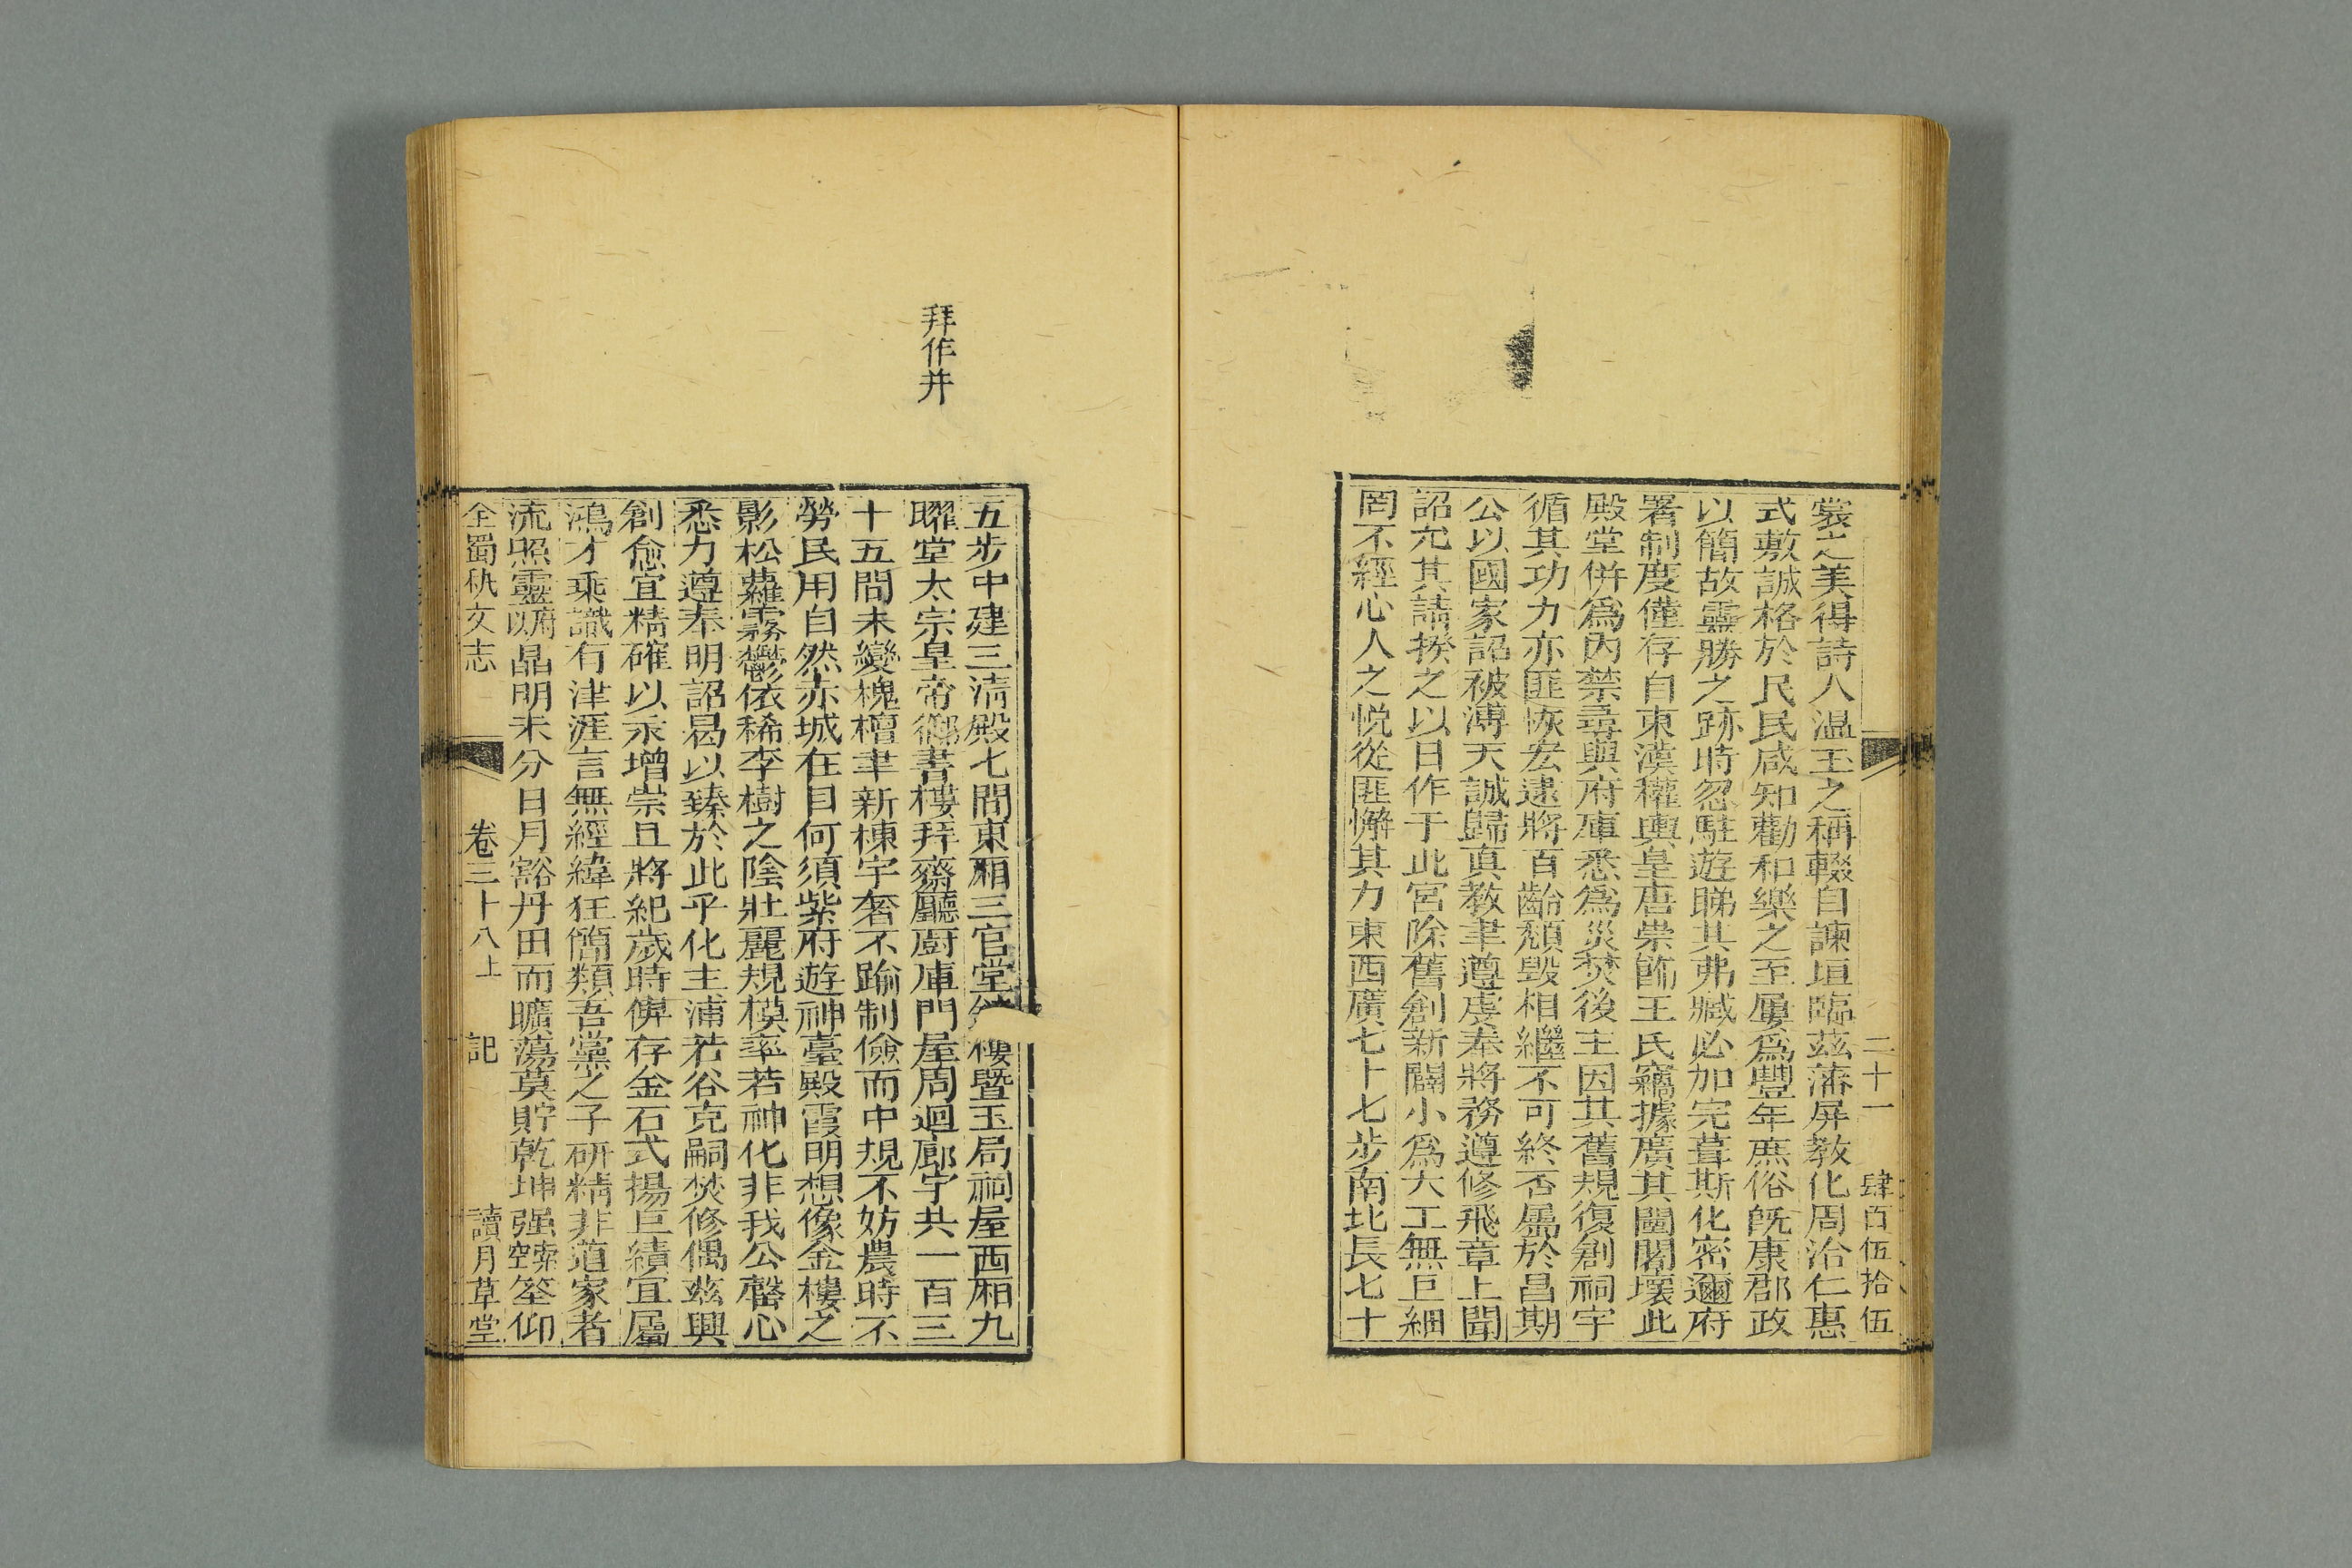 二十一 肆百伍拾伍
裳之美得詩人温玉之稱輟自諫垣臨茲藩屏教化周洽仁惠
式敷誠格於民民咸知勸和樂之至屢爲豐年庶俗旣康郡政
以簡故靈勝之跡時忽駐遊睇其弗臧必加完葺斯化密邇府
署制度僅存自東漢權輿皇唐崇飾王氏竊據廣其闤闠壞此
殿堂併爲內禁尋與府庫悉爲災焚後主因其舊規復創祠宇
循其功力亦匪恢宏逮將百齡頽毀相繼不可終否屬於昌期
公以國家詔被溥天誠歸真教聿遵虔奉將務遵修飛章上聞
詔允其請揆之以日作于此宮除舊創新闢小爲大工無巨細
罔不經心人之悦從匪懈其力東西廣七十七步南北長七十
五步中建三淸殿七間東厢三官堂樓暨玉局祠屋西厢九
曜堂太宗皇帝御書樓拜齋廳厨庫門屋周迴廊宇共一百三
十五間未變槐檀聿新棟宇奢不踰制儉而中規不妨農時不
勞民用自然赤城在目何須紫府遊神臺殿霞明想像金樓之
影松蘿霧鬱依稀李樹之陰壯麗規模率若神化非我公罄心
悉力遵奉明詔曷以臻於此乎化主浦若谷克嗣焚修偶玆興
創僉宜精確以永增崇且將紀歲時俾存金石式揚巨績宜屬
鴻才乘識有津涯言無經緯狂簡類吾黨之子研精非道家者
流照靈府以晶明未分日月豁丹田而曠蕩莫貯乾坤强索空筌仰
全蜀秇文志 卷三十八上 記 讀月草堂
拜作并